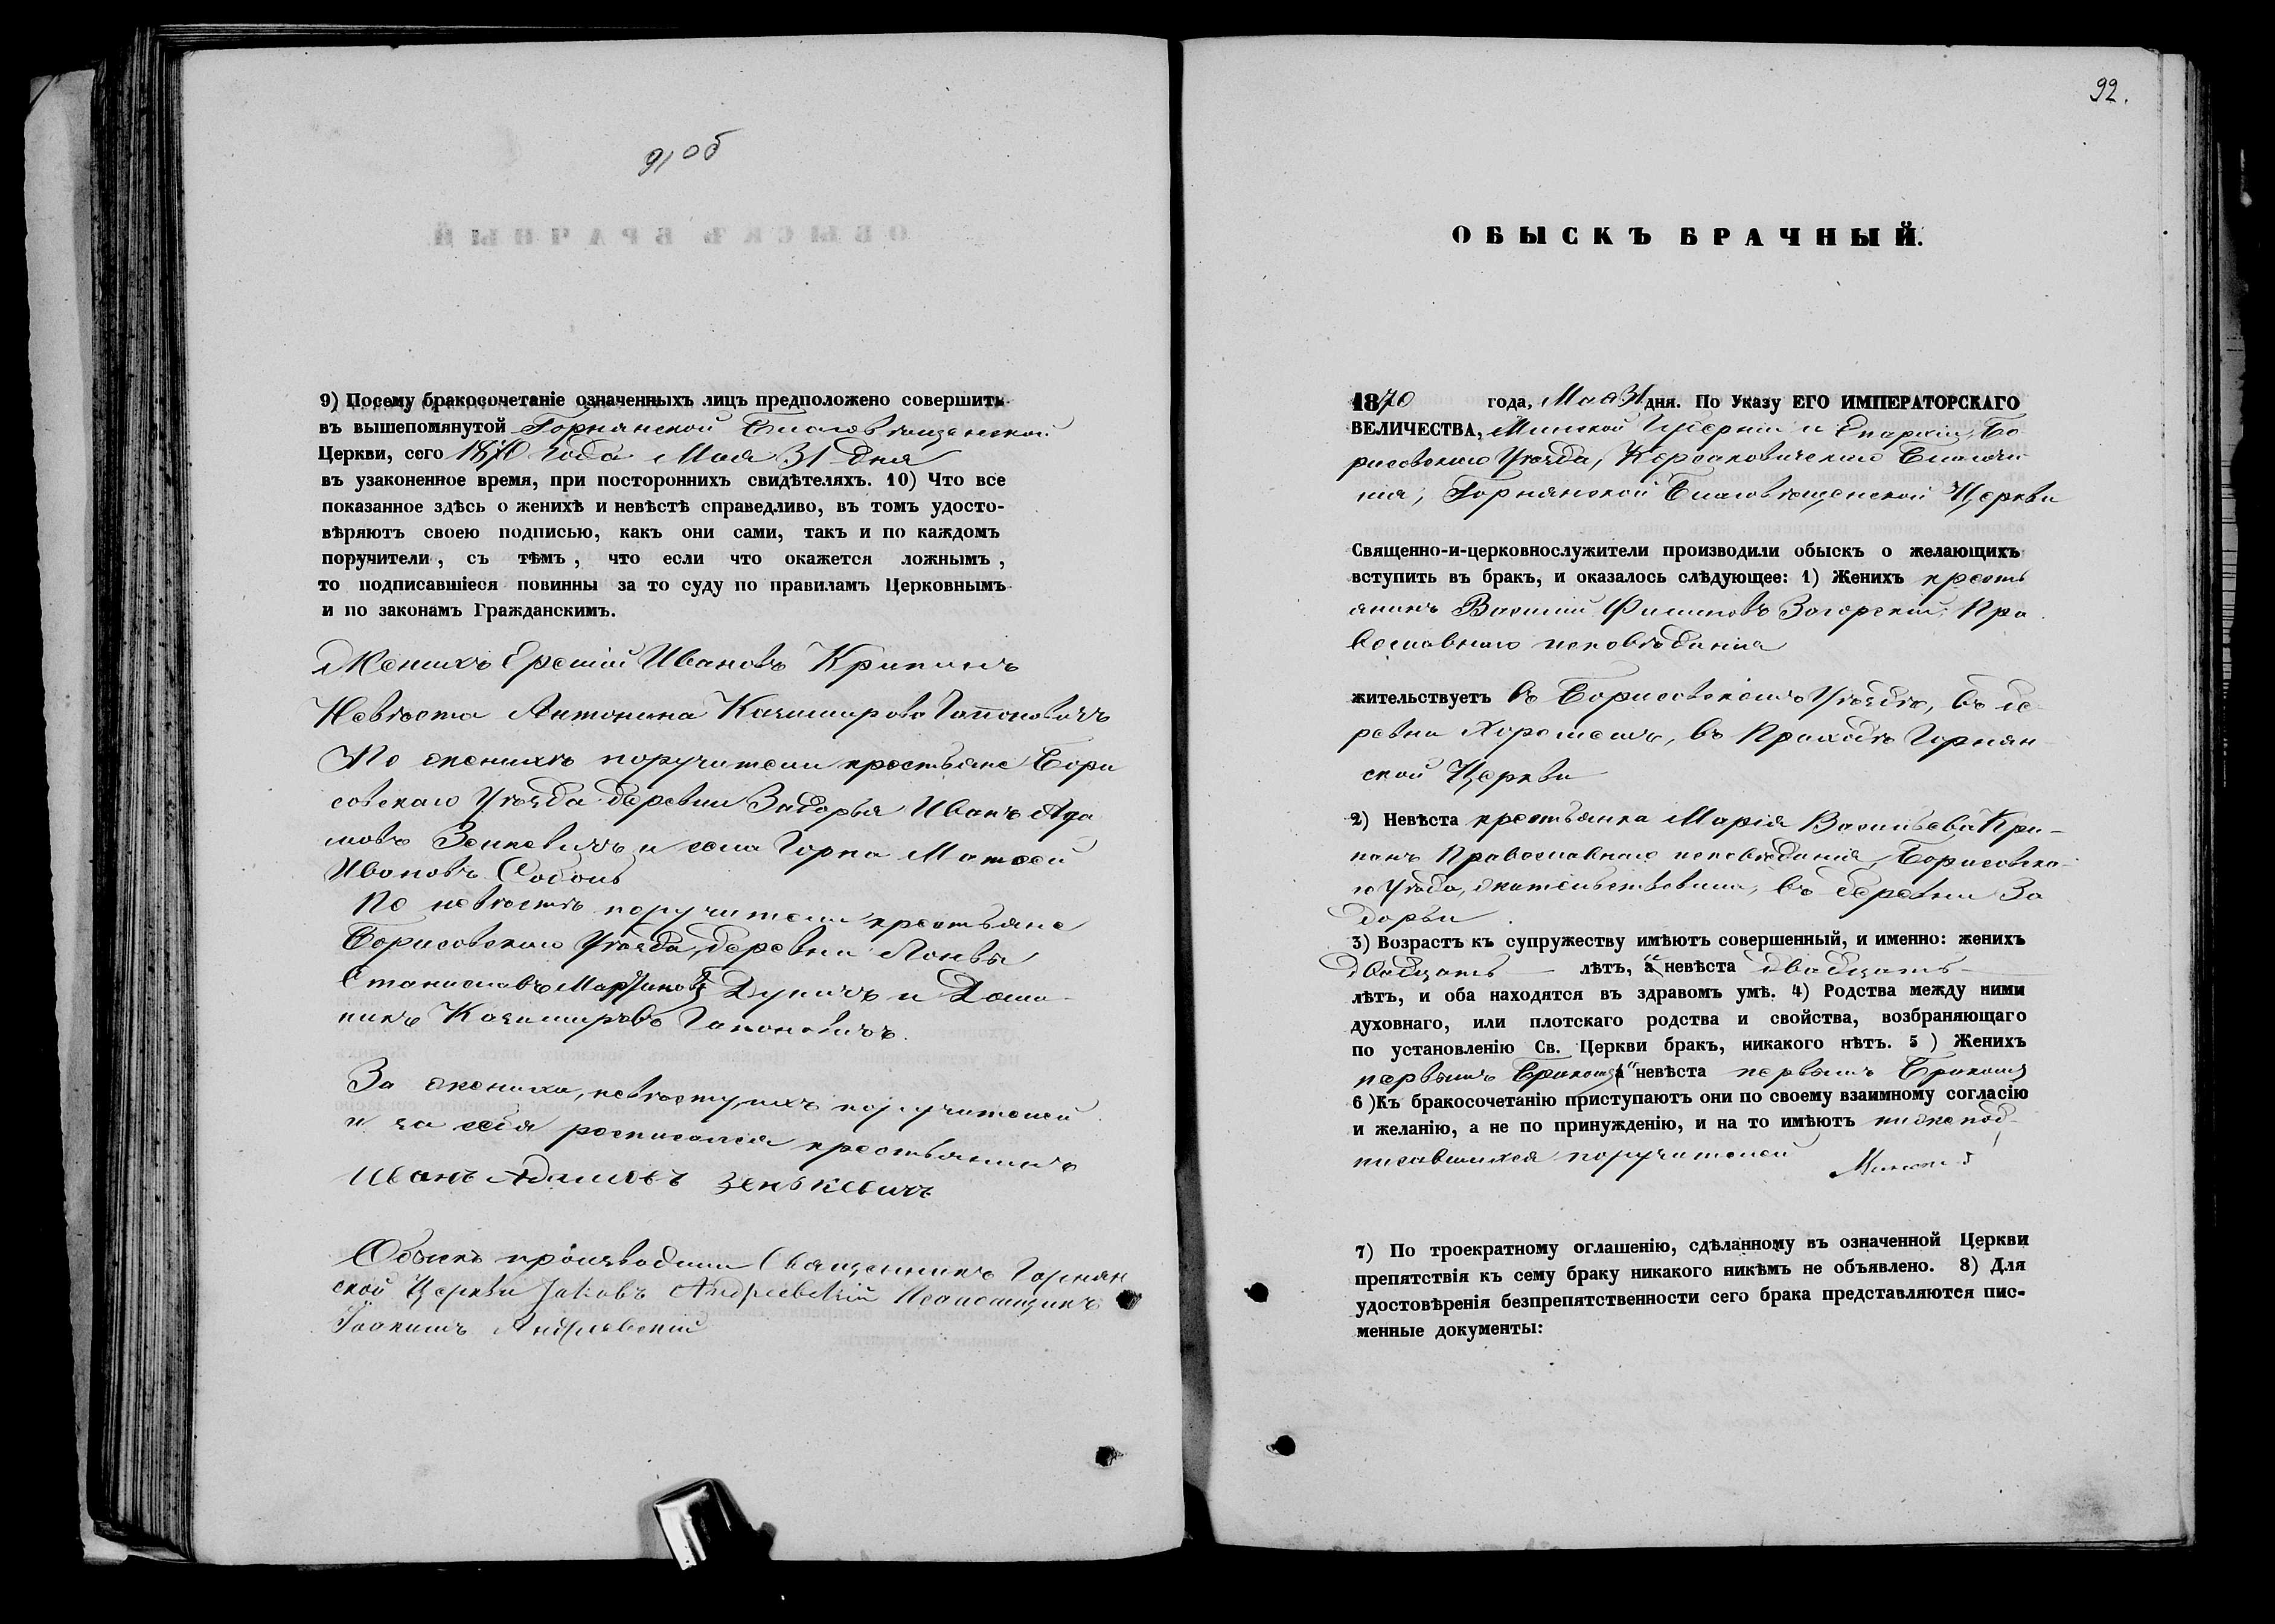 91 об
9) Посему бракосочетаніе означенныхъ лицъ предположено совершить
въ вышепомянутой Горнянской Благовѣщенской
Церкви, сего 1870 года Мая 31 дня
въ узаконенное время, при постороннихъ свидѣтеляхъ. 10) Что все
показанное здѣсь о женихѣ и невѣстѣ справедливо, въ томъ удосто-
вѣряютъ своею подписью, какъ они сами, такъ и по каждомъ
поручители, съ тѣмъ, что если что окажется ложнымъ,
то подписавшіеся повинны за то суду по правиламъ Церковнымъ
и по законамъ Гражданскимъ.
Женихъ Ивановъ Крипанъ
Невѣста Антонина Казимирова Гапоновичъ
По женихѣ поручители крестьяне Бори
совскаго Уѣзда деревни Задорья Иванъ Ада
мовъ Зенкевичъ и села Горна Матвей
Ивановъ Соболь
По невѣстѣ поручители крестьяне
Борисовскаго Уѣзда, деревни
Станиславъ Мартиновъ и Доми
никъ Казимировъ Гапоновичъ.
За жениха, невѣсту, ихъ поручителей
и за себя росписался крестьянинъ
Иванъ Адамовъ Зенькевичъ
Обыскъ производили Священникъ Горнян
ской Церкви Іаковъ Андріевскій Псаломщикъ
Іоакимъ Андріевскій
92.
ОБЫСКЪ БРАЧНЫЙ.
1870 года, Мая 31 дня. По Указу ЕГО ИМПЕРАТОРСКАГО
ВЕЛИЧЕСТВА, Минской Губерніи и Епархіи, Бо
рисовскаго Уѣзда, Корсаковичскаго Благочи
нія, Горнянской Благовѣщенской Церкви
Священно-и-церковнослужители производили обыскъ о желающихъ
вступить въ бракъ, и оказалось слѣдующее: 1) Женихъ кресть
янинъ Василій Филиповъ Загорскій, Пра
вославнаго исповѣданія
жительствуетъ въ Борисовскомъ Уѣздѣ, въ де
ревни въ Приходѣ Горнян
ской Церкви
2) Невѣста крестьянка Марія Васильева Кри-
панъ Православнаго исповѣданія, Борисовска-
го Уѣзда, жительствовала, въ деревни За
дорьи
3) Возрастъ къ супружеству имѣютъ совершенный, и именно: женихъ
двадцать лѣтъ, а невѣста двадцать
лѣтъ, и оба находятся въ здравомъ умѣ. 4) Родства между ними
духовнаго, или плотскаго родства и свойства, возбраняющаго
по установленію Св. Церкви бракъ, никакого нѣтъ. 5) Женихъ
первымъ бракомъ а невѣста первымъ бракомъ
6) Къ бракосочетанію приступаютъ они по своему взаимному согласію
и желанію, а не по принужденію, и на то имѣютъ ниже под-
писавшихся поручителей
7) По троекратному оглашенію, сдѣланному въ означенной Церкви
препятствія къ сему браку никакого никѣмъ не объявлено. 8) Для
удостовѣренія безпрепятственности сего брака представляются пис-
менные документы: